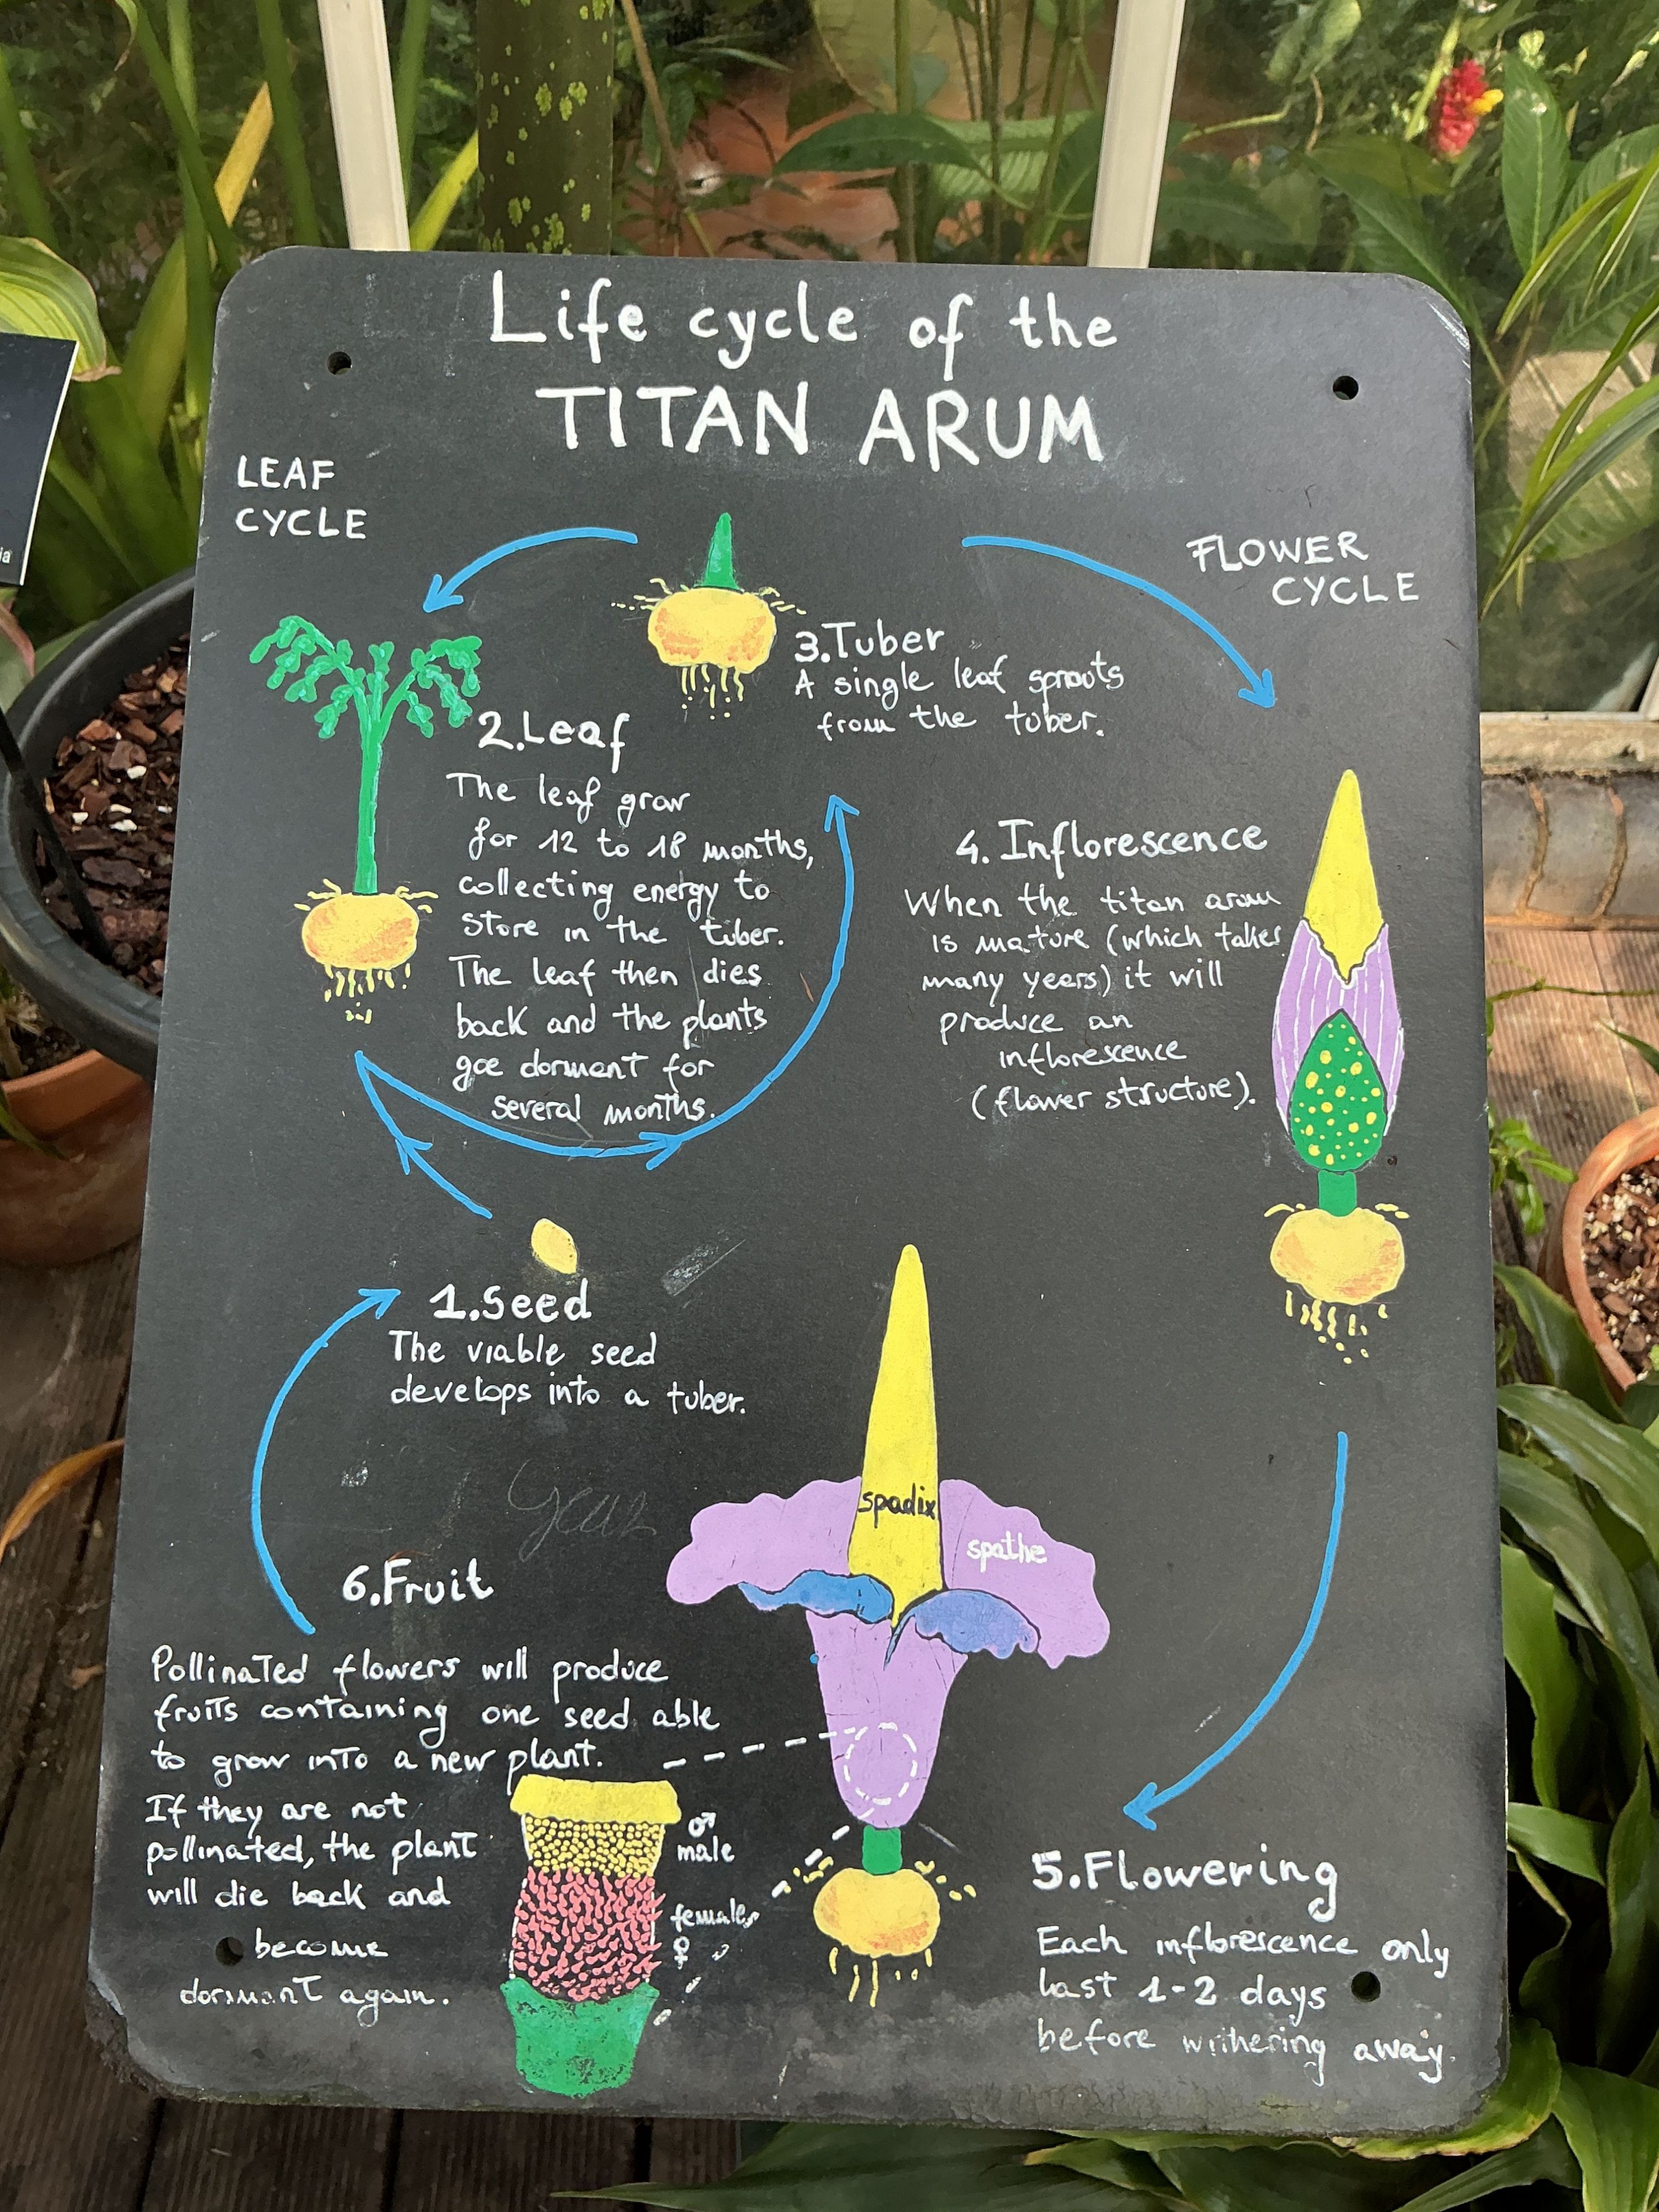 Life cycle of the
TITAN ARUM
LEAF
CYCLE
FLOWER
CYCLE
3.Tuber
A single leaf sprouts
from the tuber.
2.Leaf
The leaf grow
for 12 to 18 months,
collecting energy to
store in the tuber.
The leaf then dies
back and the plants
goe dormant for
several months.
4. Inflorescence
When the titan arum
is mature (which takes
many years) it will
produce an
inflorescence
(flower structure).
1.Seed
The viable seed
develops into a tuber.
spadix
spathe
6.Fruit
Pollinated flowers will produce
fruits containing one seed able
to grow into a new plant.
If they are not
pollinated, the plant
will die back and
become
dormant again.
♂
male
females
♀
5.Flowering
Each inflorescence only
last 1-2 days
before writhering away.
ia